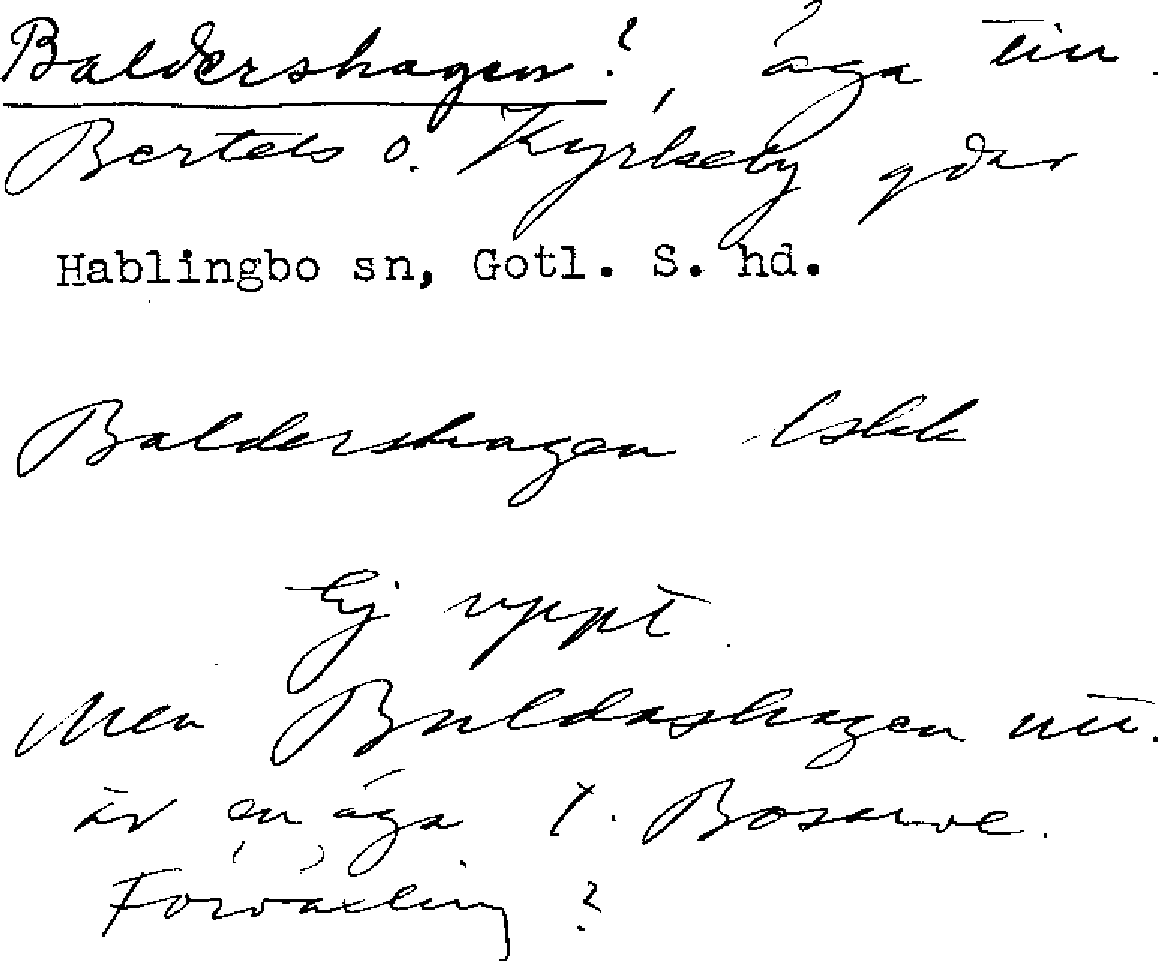 Baldershagen?, äga till
Bertels o. Kyrkeby gdar
Hablingbo sn, Gotl. S. hd.
Baldershagen lskk
Ej uppt.
Men Buldashagen
är en äga t. Bosarve.
Förväxling?